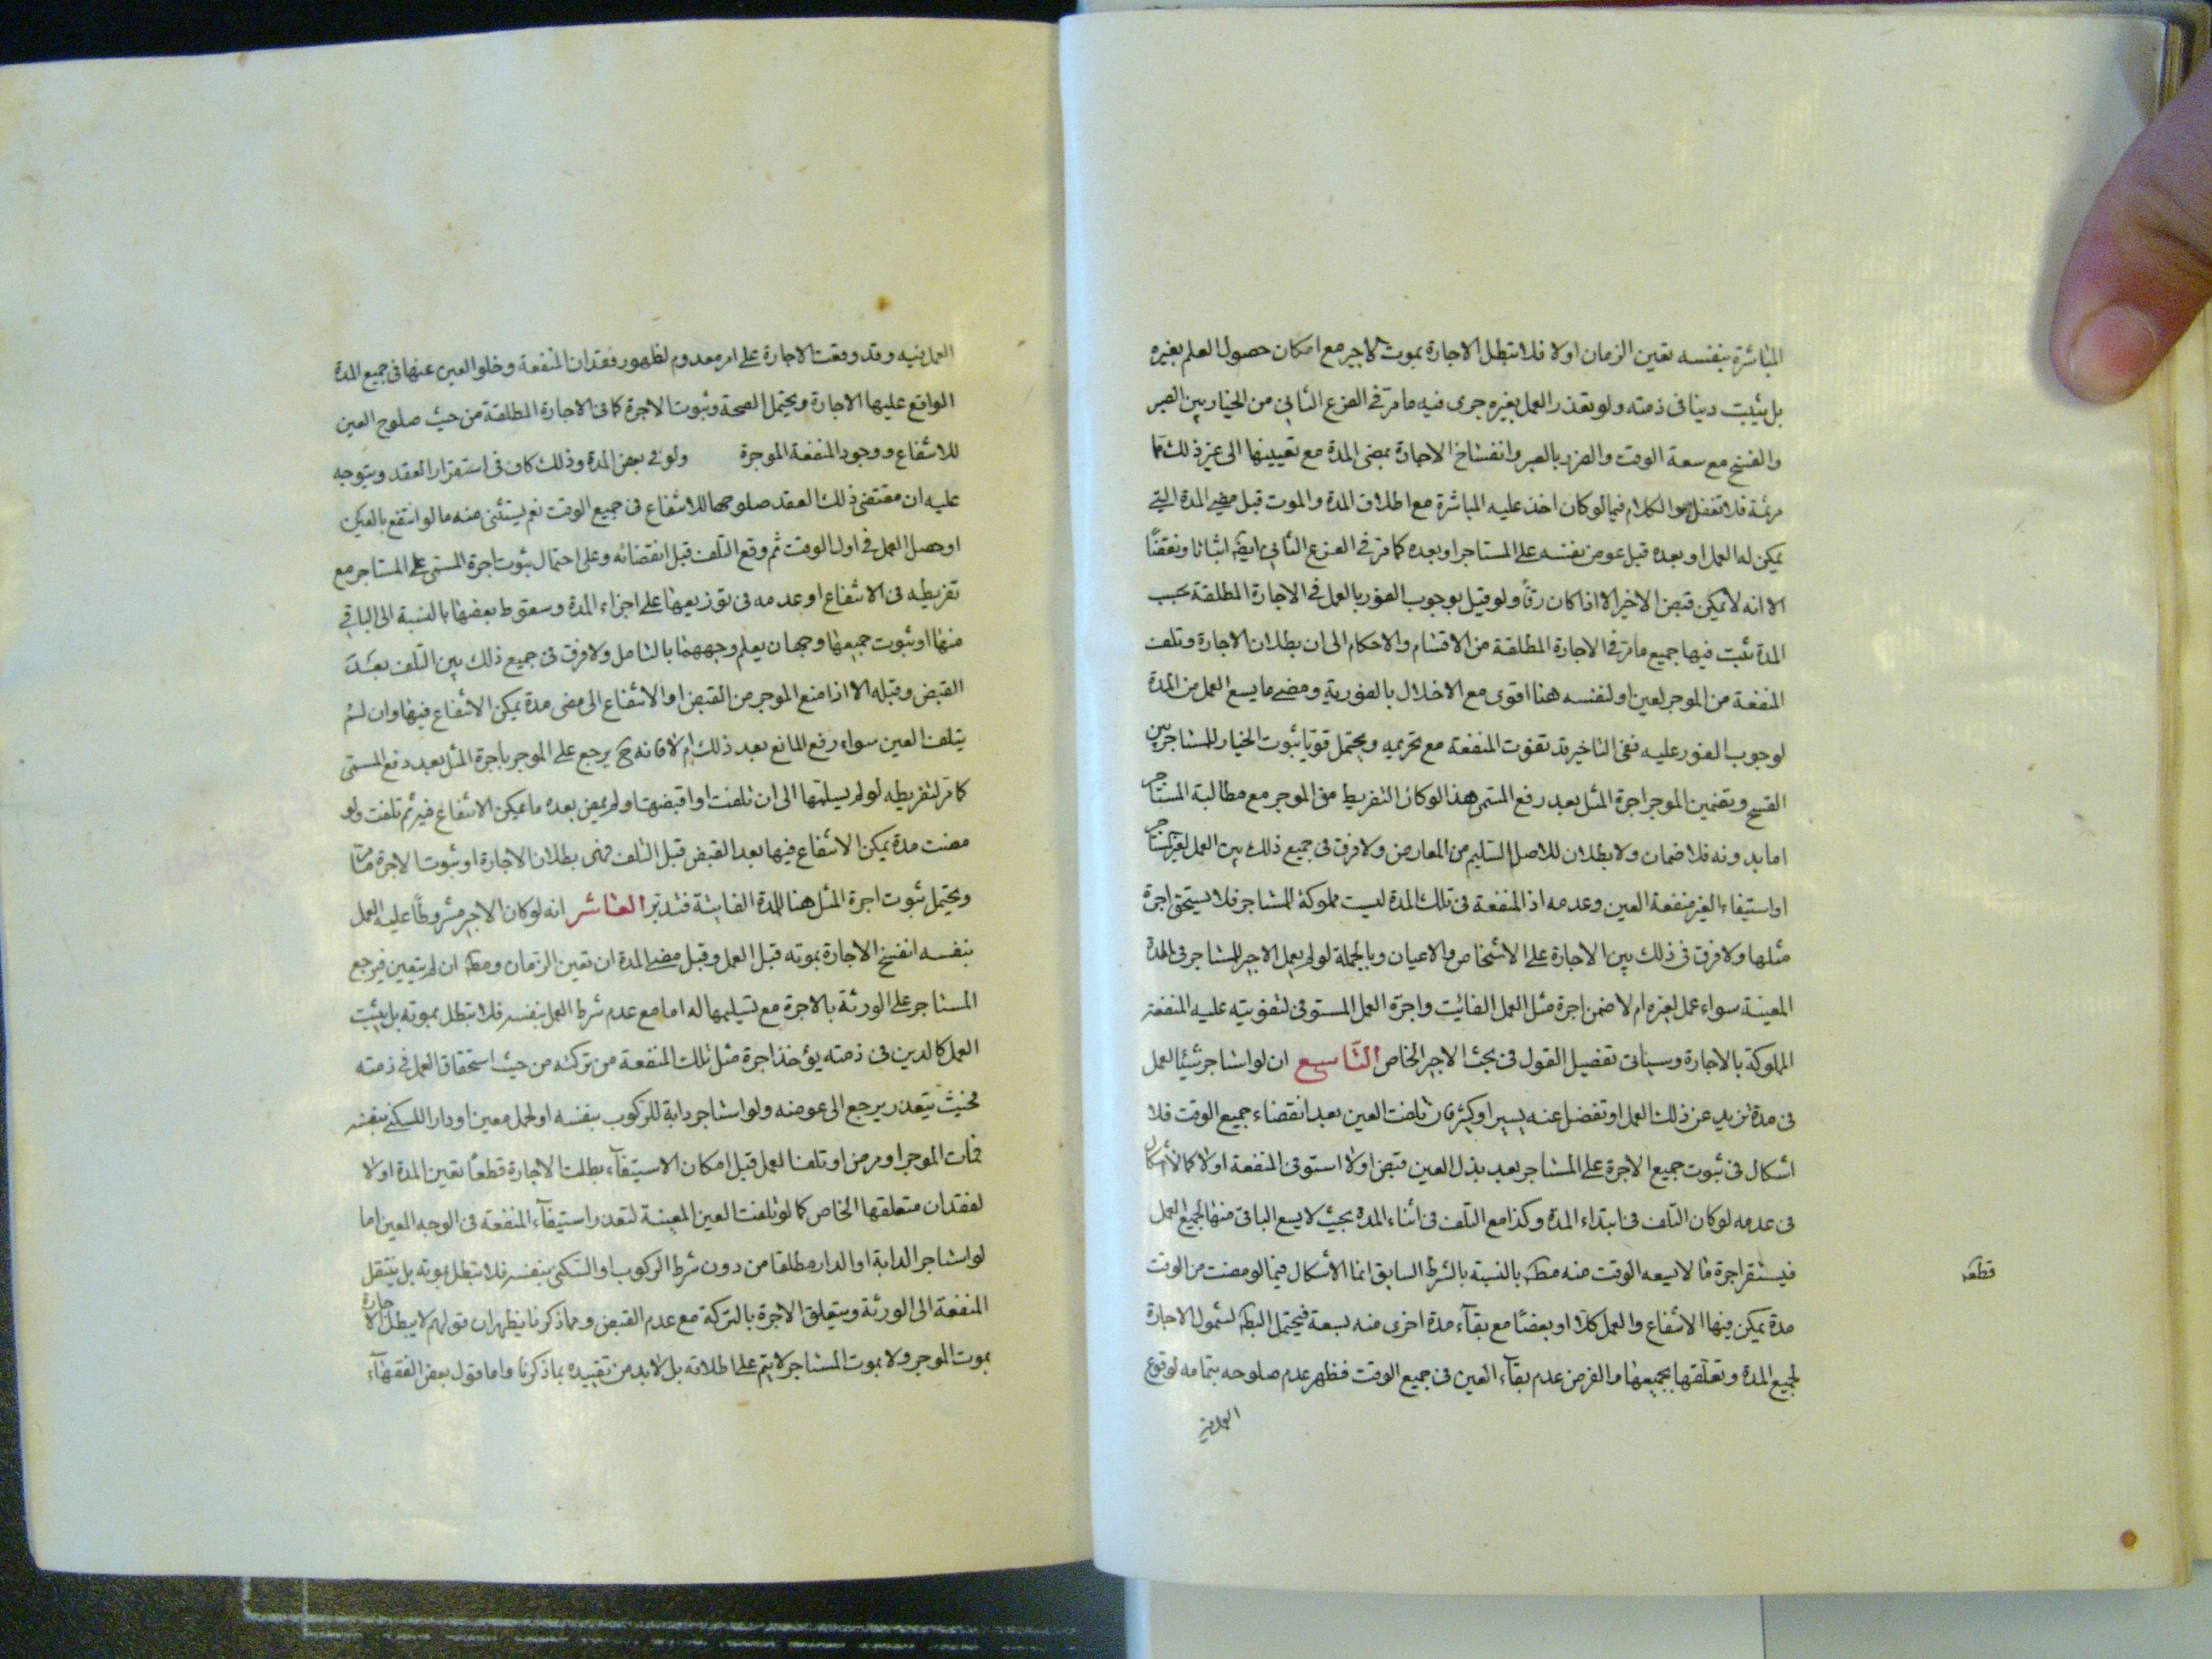 المباشرة بنفسه تعين الزمان اولا فلا تبطل الاجارة بموت الاجير مع امكان حصول العلم بغيره
بل يثبت دينا فى ذمته ولو تعذر العمل بغيره جرى فيه ما مر فى الفرع الثانى من الخيار بين الصبر
والفسخ مع سعة الوقت والضرر بالصبر وانفساخ الاجارة بمضى المدة مع تعيينها الى غير ذلك مما
مر ثمة فلا تغفل والكلام فيما لو كان اخذ عليه المباشرة مع اطلاق المدة والموت قبل مضى المدة التى
يمكن له العمل او بعده قبل عوض نفسه على المستاجر او بعده كما مر فى الفرع الثانى ايضا اثباتا ونقضًا
الا انه لا يمكن قبض الاخير الا اذا كان رقًا ولو قيل بوجوب الفور بالعمل فى الاجارة المطلقة بحسب
المدة ثبت فيها جميع ما مر فى الاجارة المطلقة من الاقسام والاحكام الى ان بطلان الاجارة وتلف
المنفعة من الموجر لعين او لنفسه هنا اقوى مع الاخلال بالفورية ومضى ما يسع العمل من المدة
لوجوب الفور عليه ففى التاخير قد تفوت المنفعة مع تحريمه ويحتمل قويا ثبوت الخيار للمستاجر بين
الفسخ وتضمين الموجر اجرة المثل بعد رفع المسمى هذا لو كان التفريط من الموجر مع مطالبة المستاجر
اما بدونه فلا ضمان ولا بطلان للاصل السليم من المعارض ولا فرق فى جميع ذلك بين العمل لغير المستاجر
او استيفاء الغير منفعة العين وعدمه اذ المنفعة فى تلك المدة ليست مملوكة للمستاجر فلا يستحق اجرة
مثلها ولا فرق فى ذلك بين الاجارة على الاشخاص والاعيان وبالجملة لو لم يعمل الاجير للمستاجر فى المدة
المعينة سواء عمل لغيره ام لا ضمن اجرة مثل العمل الفائت واجرة العمل المستوفى لتفويته عليه المنفعة
المملوكة بالاجارة وسياتى تفصيل القول فى بحث الاجير الخاص التّاسع ان لو استاجر شيئا لعمل
فى مدة تزيد عن ذلك العمل او تفضل عنه بيسير او كثير فان تلفت العين بعد انقضاء جميع الوقت فلا
اشكال فى ثبوت جميع الاجرة على المستاجر بعد بذل العين قبض اولا استوفى المنفعة اولا كما لا اشكال
فى عدمه لو كان التلف فى ابتداء المدة وكذا مع التلف فى اثناء المدة بحيث لا يسع الباقى منها لجميع العمل
فيستقر اجرة ما لا يسعه الوقت منه مط بالنسبة بالشرط السابق انما الاشكال فيما لو مضت من الوقت
قطعه
مدة يمكن فيها الانتفاع والعمل كلا او بعضًا مع بقآء مدة اخرى منه بسعة فيحتمل البط لشمول الاجارة
لجميع المدة وتعلقها بجميعها والفرض عدم بقآء العين فى جميع الوقت فظهر عدم صلوحه بتمامه لوقوع
العمل فيه
العمل فيه وقد وقعت الاجارة على امر معدوم لظهور فقدان المنفعة وخلو العين عنها فى جميع المدة
الواقع عليها الاجارة ويحتمل الصحة وثبوت الاجرة كما فى الاجارة المطلقة من حيث صلوح العين
للانتفاع ووجود المنفعة الموجرة ولو فى بعض المدة وذلك كاف فى استقرار العقد ويتوجه
عليه ان مقتضى ذلك العقد صلوحها للانتفاع فى جميع الوقت نعم يستثنى منه ما لو انتفع بالعين
او حصل العمل فى اول الوقت ثم وقع التلف قبل انقضائه وعلى احتمال ثبوت اجرة المسمى على المستاجر مع
تفريطه فى الانتفاع او عدمه فى توزيعها على اجزاء المدة وسقوط بعضها بالنسبة الى الباقى
منها او ثبوت جميعها وجهان يعلم وجههما بالتامل ولا فرق فى جميع ذلك بين التلف بعد
القبض وقبله الا اذا منع الموجر من القبض او الانتفاع الى مضى مدة يمكن الانتفاع فيها وان لم
يتلف العين سواء رفع المانع بعد ذلك ام لا فانه ح يرجع على الموجر باجرة المثل بعد دفع المسمى
كما مر لتفريطه لو لم يسلمها الى ان تلفت او اقبضها ولم يمض بعده ما يمكن الانتفاع فيه ثم تلفت ولو
مضت مدة يمكن الانتفاع فيها بعد القبض قبل التلف فمنى بطلان الاجارة او ثبوت الاجرة ما مر
ويحتمل ثبوت اجرة المثل هنا للمدة الفايتة فتدبر العاشر انه لو كان الاجير مشروطًا عليه العمل
بنفسه انفسخ الاجارة بموته قبل العمل وقبل مضى المدة ان تعين الزمان ومط ان لم يتعين فيرجع
المستاجر على الورثة بالاجرة مع تسليمها له اما مع عدم شرط العمل بنفسه فلا تبطل بموته بل يثبت
العمل كالدين فى ذمته يؤخذ اجرة مثل تلك المنفعة من تركته من حيث استحقاق العمل فى ذمته
فحيث يتعذر يرجع الى عوضه ولو استاجر دابة للركوب بنفسه او لحمل معين او دارا للسكنى بنفسه
فمات الموجر او مرض او تلف العمل قبل امكان الاستيفآء بطلت الاجارة قطعًا تعين المدة اولا
لفقدان متعلقها الخاص كما لو تلفت العين المعينة لتعذر استيفآء المنفعة فى الوجه المعين اما
لو استاجر الدابة او الدار مطلقا من دون شرط الركوب او السكنى بنفسه فلا تبطل بموته بل ينتقل
المنفعة الى الورثة ويتعلق الاجرة بالتركة مع عدم القبض ومما ذكرنا يظهر ان قولهم لا يبطل الاجارة
بموت الموجر ولا بموت المستاجر لا يتم على اطلاقه بل لا بد من تقييده بما ذكرنا واما قول بعض الفقهآء